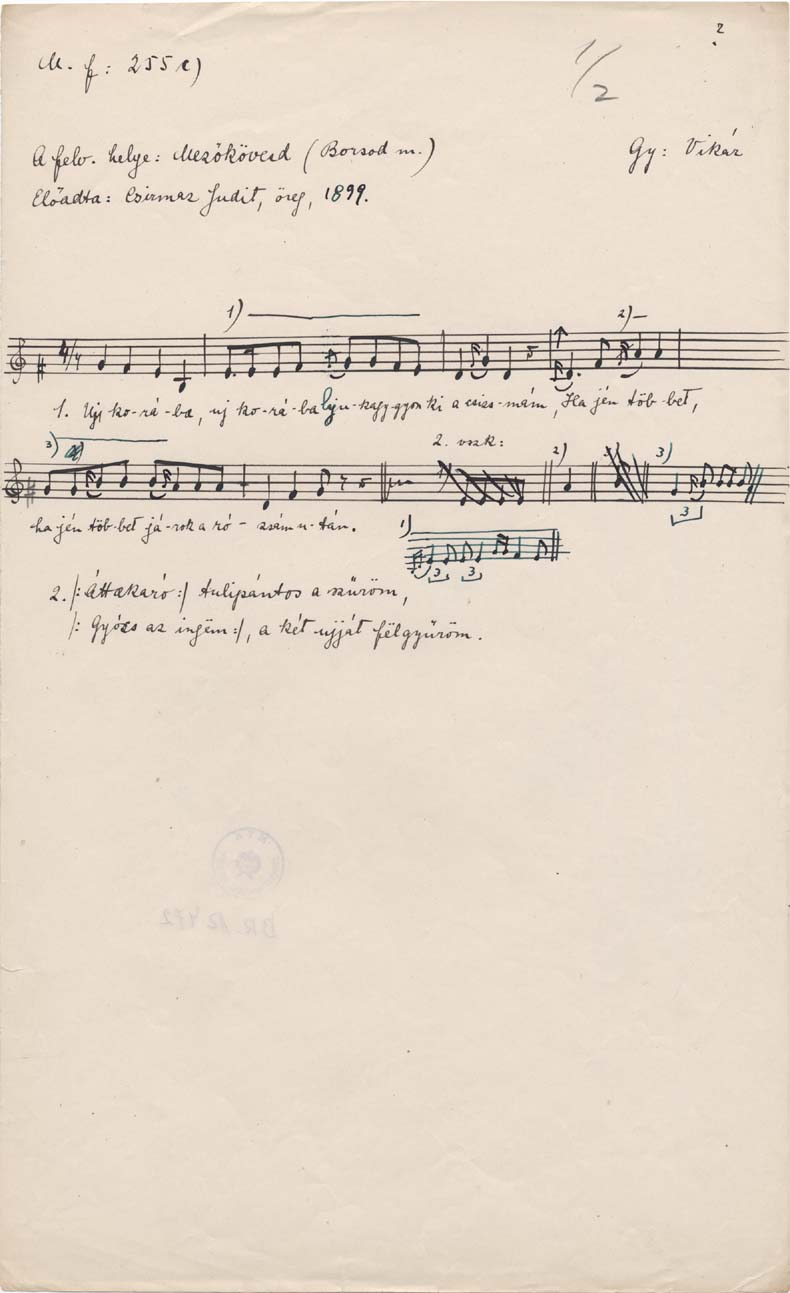 2
M. f: 255 c)
1/2
A felv. helye: Mezőkövesd (Borsod m.)
Gy: Vikár
Előadta: Csirmaz Judit, öreg, 1899.
1)
2)
4/4
1. Uj ko-rá-ba, uj ko-rá-ba lyu-kagy-gyon ki a csizs-mám, Ha jén töb-bet,
3)
2. vszk:
2)
3)
3
ha jén töb-bet já-rok a ró-zsám u-tán.
1)
3 3
2. /: Áttakaró :/ tulipántos a szűröm,
/: Gyócs az ingëm :/, a két ujját fëlgyűröm.
BR 12472